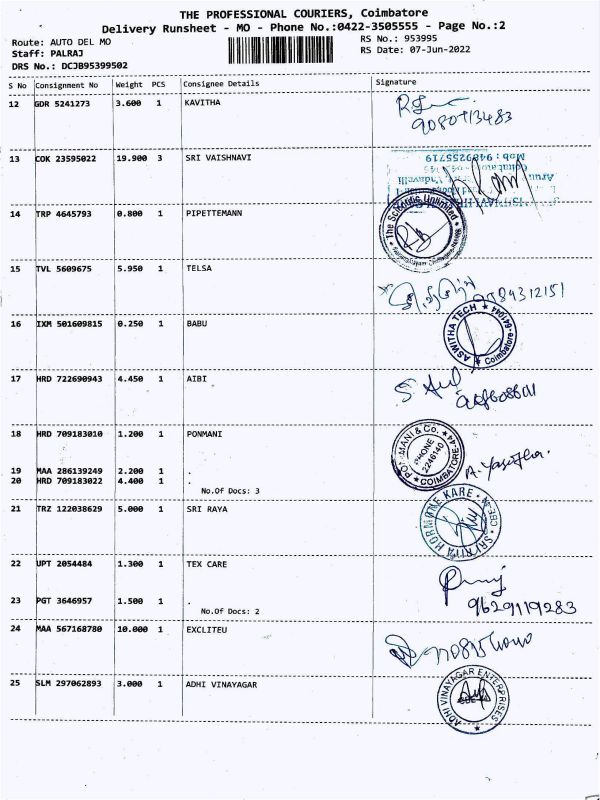 THE PROFESSIONAL COURIERS, Coimbatore
Delivery Runsheet - MO - Phone No.:0422-3505555 - Page No.:2
Route: AUTO DEL MO
RS No.: 953995
Staff: PALRAJ
RS Date: 07-Jun-2022
DRS No.: DCJB95399502
S No Consignment No Weight PCS Consignee Details Signature
12 GDR 5241273 3.600 1 KAVITHA
13 COK 23595022 19.900 3 SRI VAISHNAVI
Mob : 9489255719
14 TRP 4645793 0.800 1 PIPETTEMANN
The Scientific Unlimited
15 TVL 5609675 5.950 1 TELSA
16 IXM 501609815 0.250 1 BABU
ASWITHA TECH
Coimbatore-641044
17 HRD 722690943 4.450 1 AIBI
18 HRD 709183010 1.200 1 PONMANI
PONMANI & Co.
PHONE
2246140
COIMBATORE-44
19 MAA 286139249 2.200 1 .
20 HRD 709183022 4.400 1 .
No.Of Docs: 3
21 TRZ 122038629 5.000 1 SRI RAYA
HORMONE KARE
22 UPT 2054484 1.300 1 TEX CARE
9629119283
23 PGT 3646957 1.500 1 .
No.Of Docs: 2
24 MAA 567168780 10.000 1 EXCLITEU
25 SLM 297062893 3.000 1 ADHI VINAYAGAR
ADHI VINAYAGAR ENTERPRISES